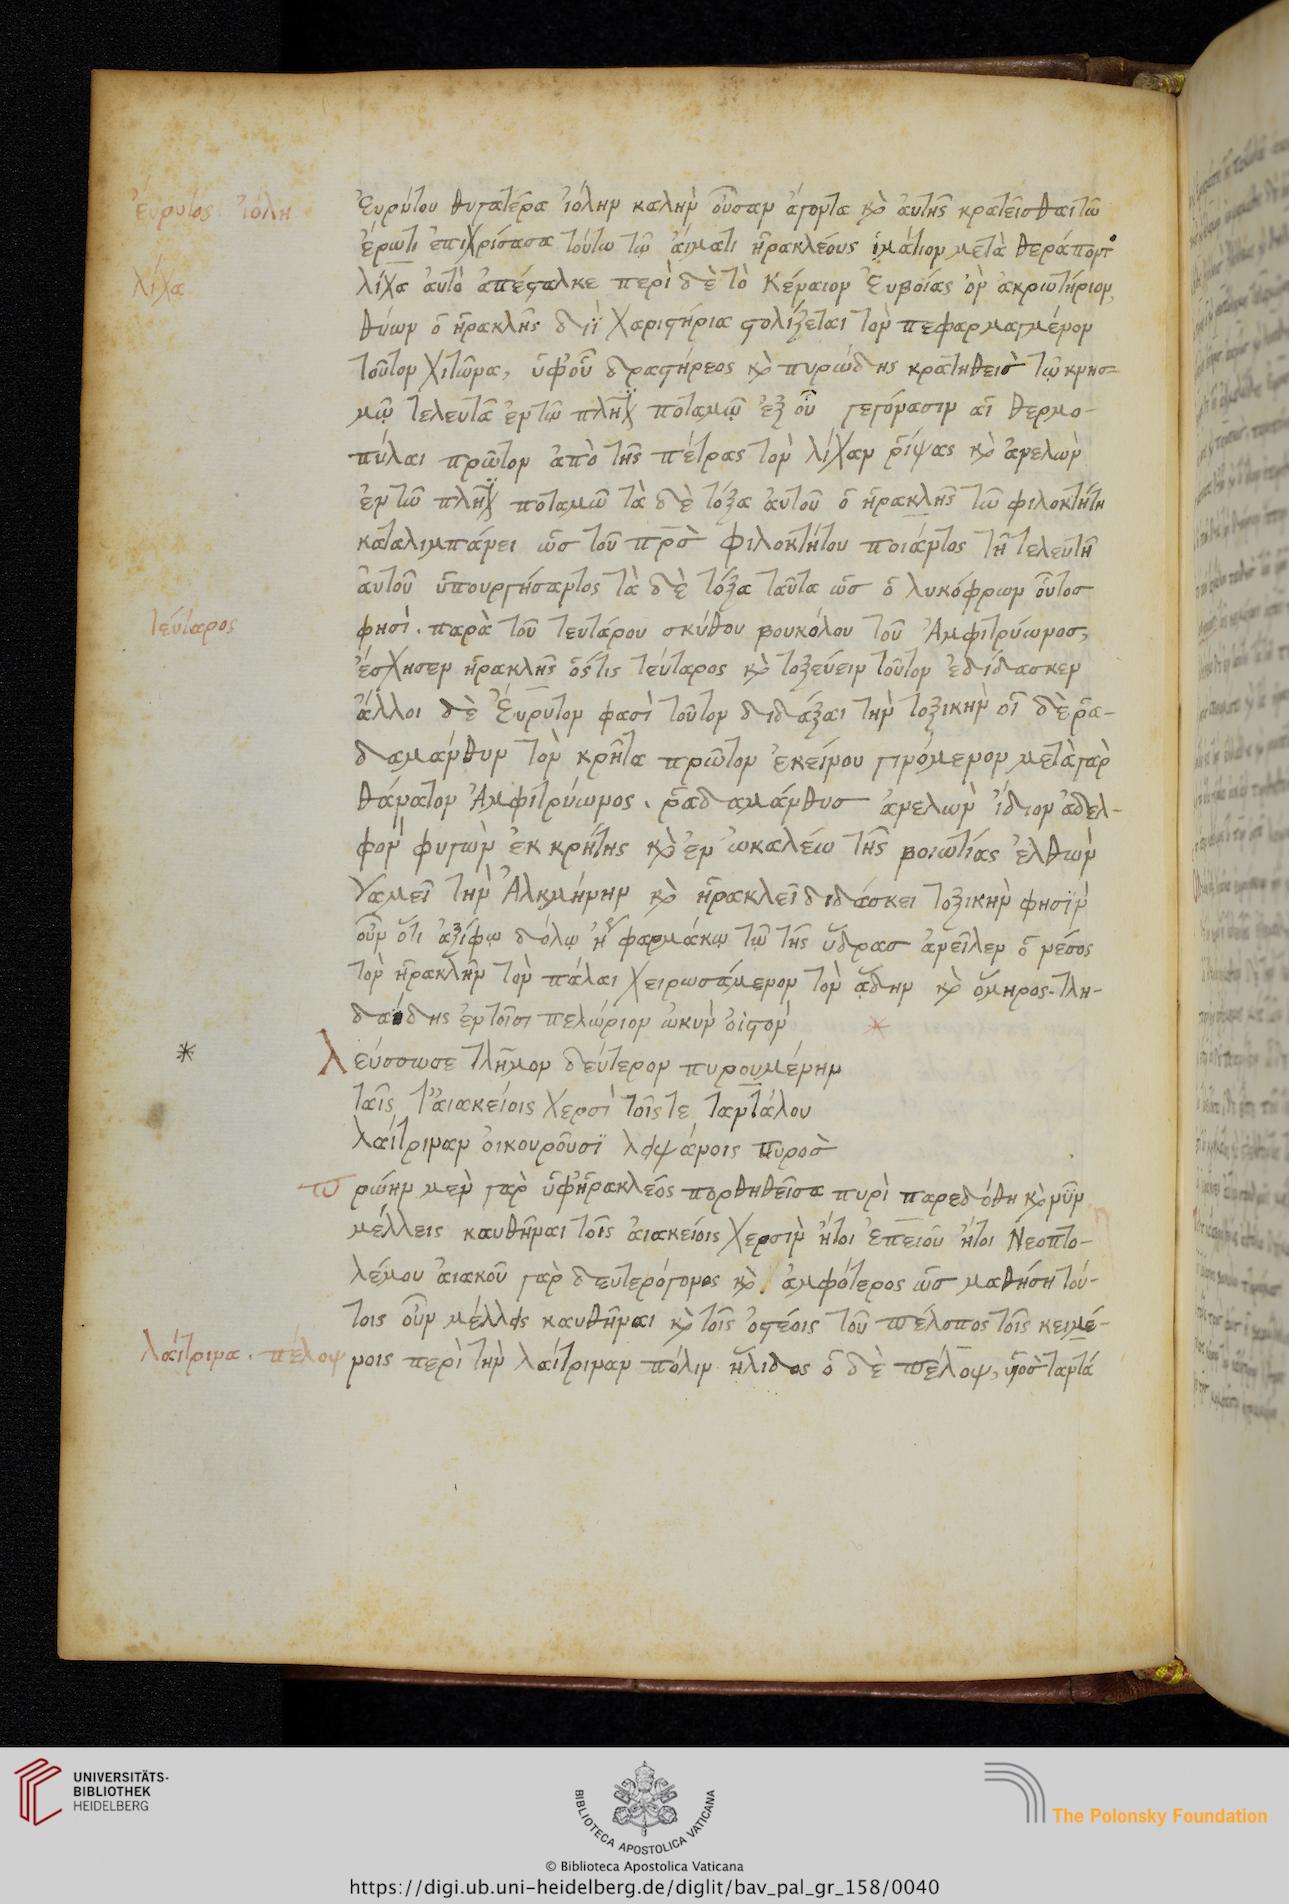 ἔυρυτος· ἰόλη
Ἐυρύτου θυγατέρα ἰόλην καλὴν οὖσαν ἄγοντα καὶ ἀυτῆς κρατεῖσθαι τῶ
ἔρωτι ἐπιχρίσασα τούτω τῷ ἅιματι ἡρακλέους ἱμάτιον μετὰ θεράποντο
λίχα
λίχα ἀυτὸ ἀπέσταλκε περὶ δὲ τὸ Κέναιον Ἐυβοίας ὂν ἀκρωτήριον,
θύων ὁ ἡρακλῆς διῒ χαριστήρια στολίζεται τὸν πεφαρμαγμένον
τοῦτον χιτῶνα, ὑφ' οὗ δραστήρεος καὶ πυρώδης κρατηθεὶσ τῷ κνησ=
μῷ τελευτᾶ ἐν τῶ ποταμῷ ἐξ οὗ γεγόνασιν αἱ θερμο-
πύλαι πρῶτον ἀπὸ τῆς πέτρας τὸν λίχαν ῥίψας καὶ ἀνελὼν
ἐν τῶ ποταμῶ τὰ δὲ τόξα ἀυτοῦ ὁ ἡρακλῆς τῶ φιλοκτήτη
καταλιμπάνει ὡσ τοῦ πρσ φιλοκτήτου ποιάντος τῆ τελευτῆ
ἀυτοῦ ὑπουργήσαντος τὰ δὲ τόξα ταῦτα ὡσ ὁ λυκόφρων οὗτοσ
τέυταρος
φησί· παρὰ τοῦ τευτάρου σκύθου βουκόλου τοῦ Ἀμφιτρύωνοσ,
ἔσχησεν ἡρακλῆς ὅστις τέυταρος καὶ τοξεύειν τοῦτον ἐδίδασκεν
ἄλλοι δὲ Ἔυρυτον φασὶ τοῦτον διδάξαι τὴν τοξικὴν οἱ δὲ ῥα-
δαμάνθυν τὸν κρῆτα πρῶτον ἐκείνου γινόμενον μετὰ γὰρ
θάνατον Ἀμφιτρύωνος· ῥαδαμάνθυσ ἀνελὼν ἴδιον ἀδελ-
φὸν φυγὼν ἐκ κρήτης καὶ ἐν ὠκαλέω τῆς βοιωτίας ἐλθὼν
γαμεῖ τὴν Ἀλκμήνην καὶ ἡρακλεῖ διδάσκει τοξικὴν φησῒν
οὖν ὅτι ἀξίφω δόλῳ ἢ φαρμάκῳ τῷ τῆς ὕδρασ ἀνεῖλεν ὁ νέσος
τὸν ἡρακλῆν τὸν πάλαι χειρωσάμενον τὸν ἅδην καὶ ὅμηρος· τλη-
δαίδης ἐν τοῖσι πελώριον ὠκὺν ὀϊστόν
λεύσσωσε τλῆμον δεύτερον πυρουμένην
ταῖς τ' ἀιακείοις χερσὶ τοῖς τε ταντάλου
λάιτριναν ὀικουροῦσϊ λειψάνοις πυροσ
το ρώην μεν γὰρ ὑφ' ἡρακλέος πορθηθεῖσα πυρὶ παρεδόθη καὶ νῦν
μέλλεις καυθῆναι τοῖς ἀιακείοις χερσὶν ἤτοι ἐπειοῦ ἤτοι Νεοπτο-
λέμου ἀιακοῦ γὰρ δευτερόγονος καὶ ἀμφότερος ὡσ μαθήση τού-
τοις οὖν μέλλεις καυθῆναι καὶ τοῖς ὀστέοις τοῦ πέλοπος τοῖς κειμέ-
λάιτρινα· πέλοψ
νοις περὶ τὴν λάιτριναν πόλιν ἤλιδος ὁ δὲ πέλοψ, ὑιοσ ταντά
UNIVERSITÄTS-
BIBLIOTHEK
HEIDELBERG
BIBLIOTECA APOSTOLICA VATICANA
The Polonsky Foundation
© Biblioteca Apostolica Vaticana
https://digi.ub.uni-heidelberg.de/diglit/bav_pal_gr_158/0040